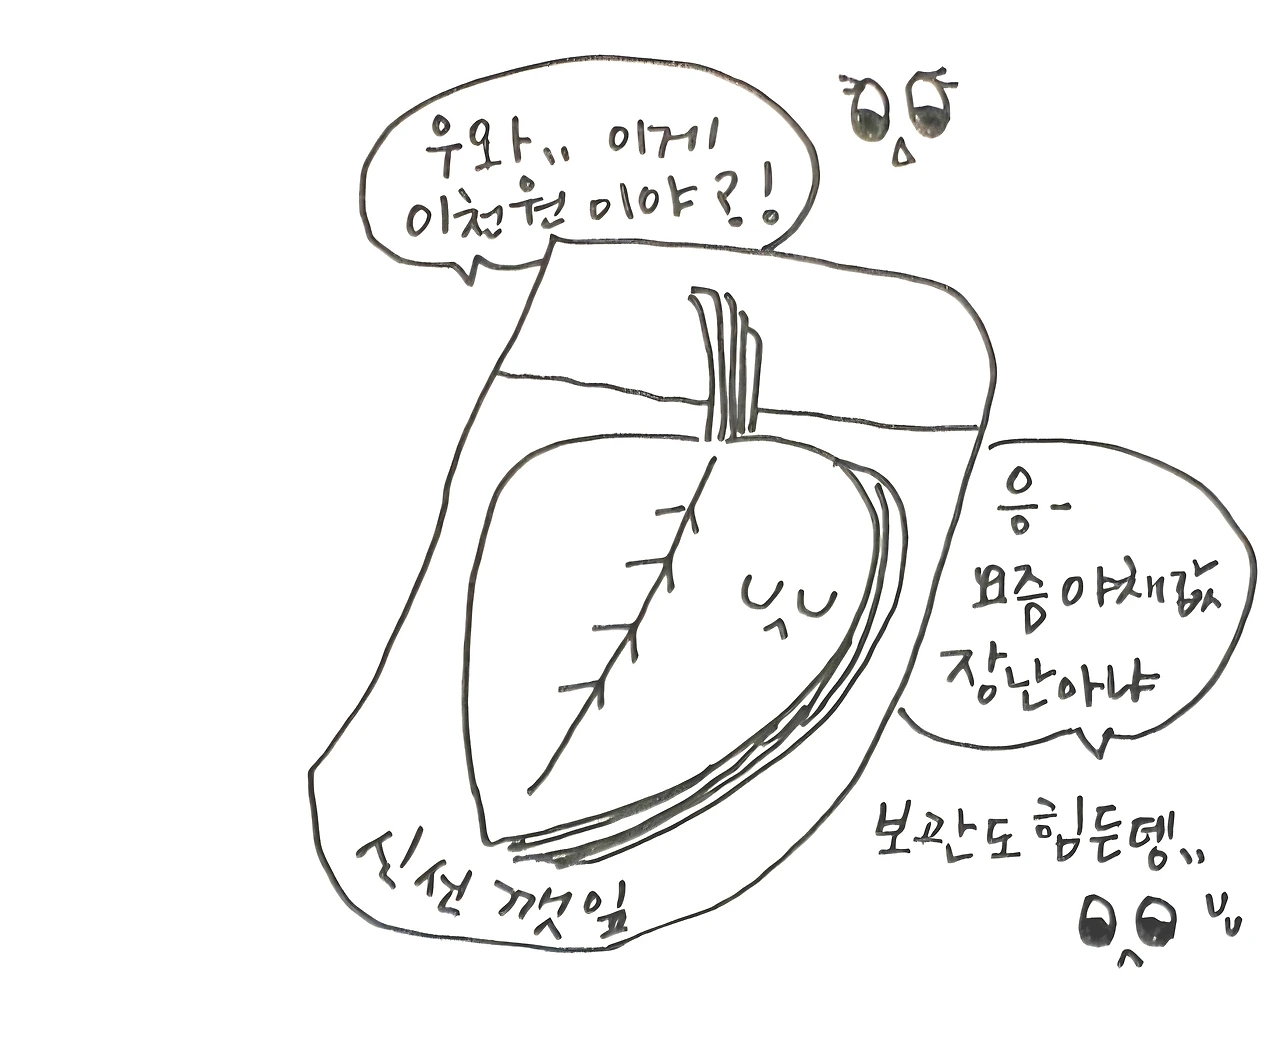 우와,, 이게
이천원이야?!
응-
요즘 야채값
장난아냐
보관도 힘든뎅,,
신선 깻잎